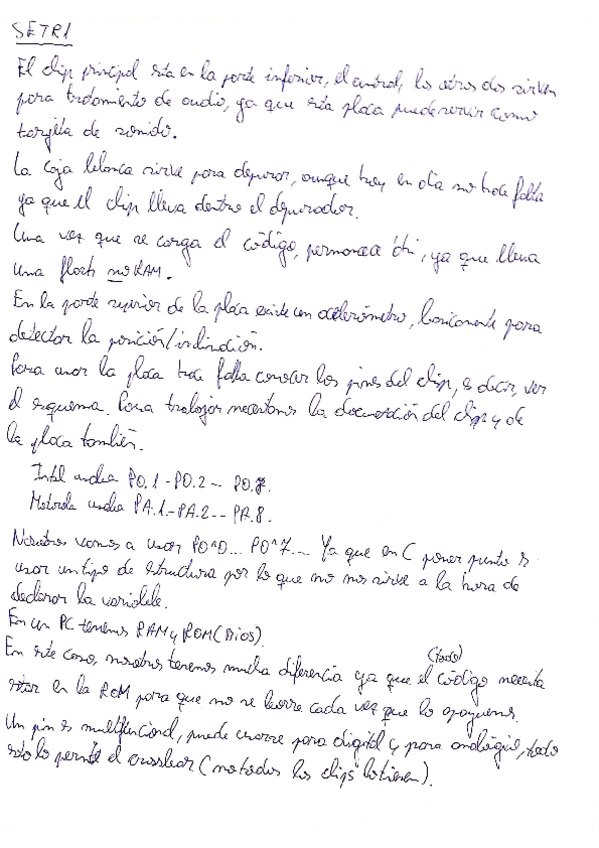 SETR1
El chip principal esta en la parte inferior, el central, los otros dos sirven
para tratamiento de audio, ya que esta placa puede servir como
tarjeta de sonido.
La caja blanca sirve para depurar, aunque hoy en dia no hace falta
ya que el chip lleva dentro el depurador.
Una vez que se carga el código, permanece ahi, ya que lleva
una flash no RAM.
En la parte superior de la placa existe un acelerómetro, basicamente para
detectar la posición/inclinación.
Para usar la placa hace falta conocer los pines del chip, es decir, ver
el esquema. Para trabajar necesitamos la documentación del chip y de
la placa también.
Intel usaba P0.1 - P0.2 -- P0.8.
Motorola usaba PA.1 - PA.2 -- PA.8.
Nosotros vamos a usar P0^0... P0^7... Ya que en C poner punto es
usar un tipo de estructura por lo que no nos sirve a la hora de
declarar la variable.
En un PC tenemos RAM y ROM (Bios).
En este caso, nosotros tenemos mucha diferencia ya que el (todo) código necesita
estar en la ROM para que no se borre cada vez que lo apaguemos.
Un pin es multifuncional, puede usarse para digital y para analógico, todo
esto lo permite el crossbar (no todos los chips lo tienen).